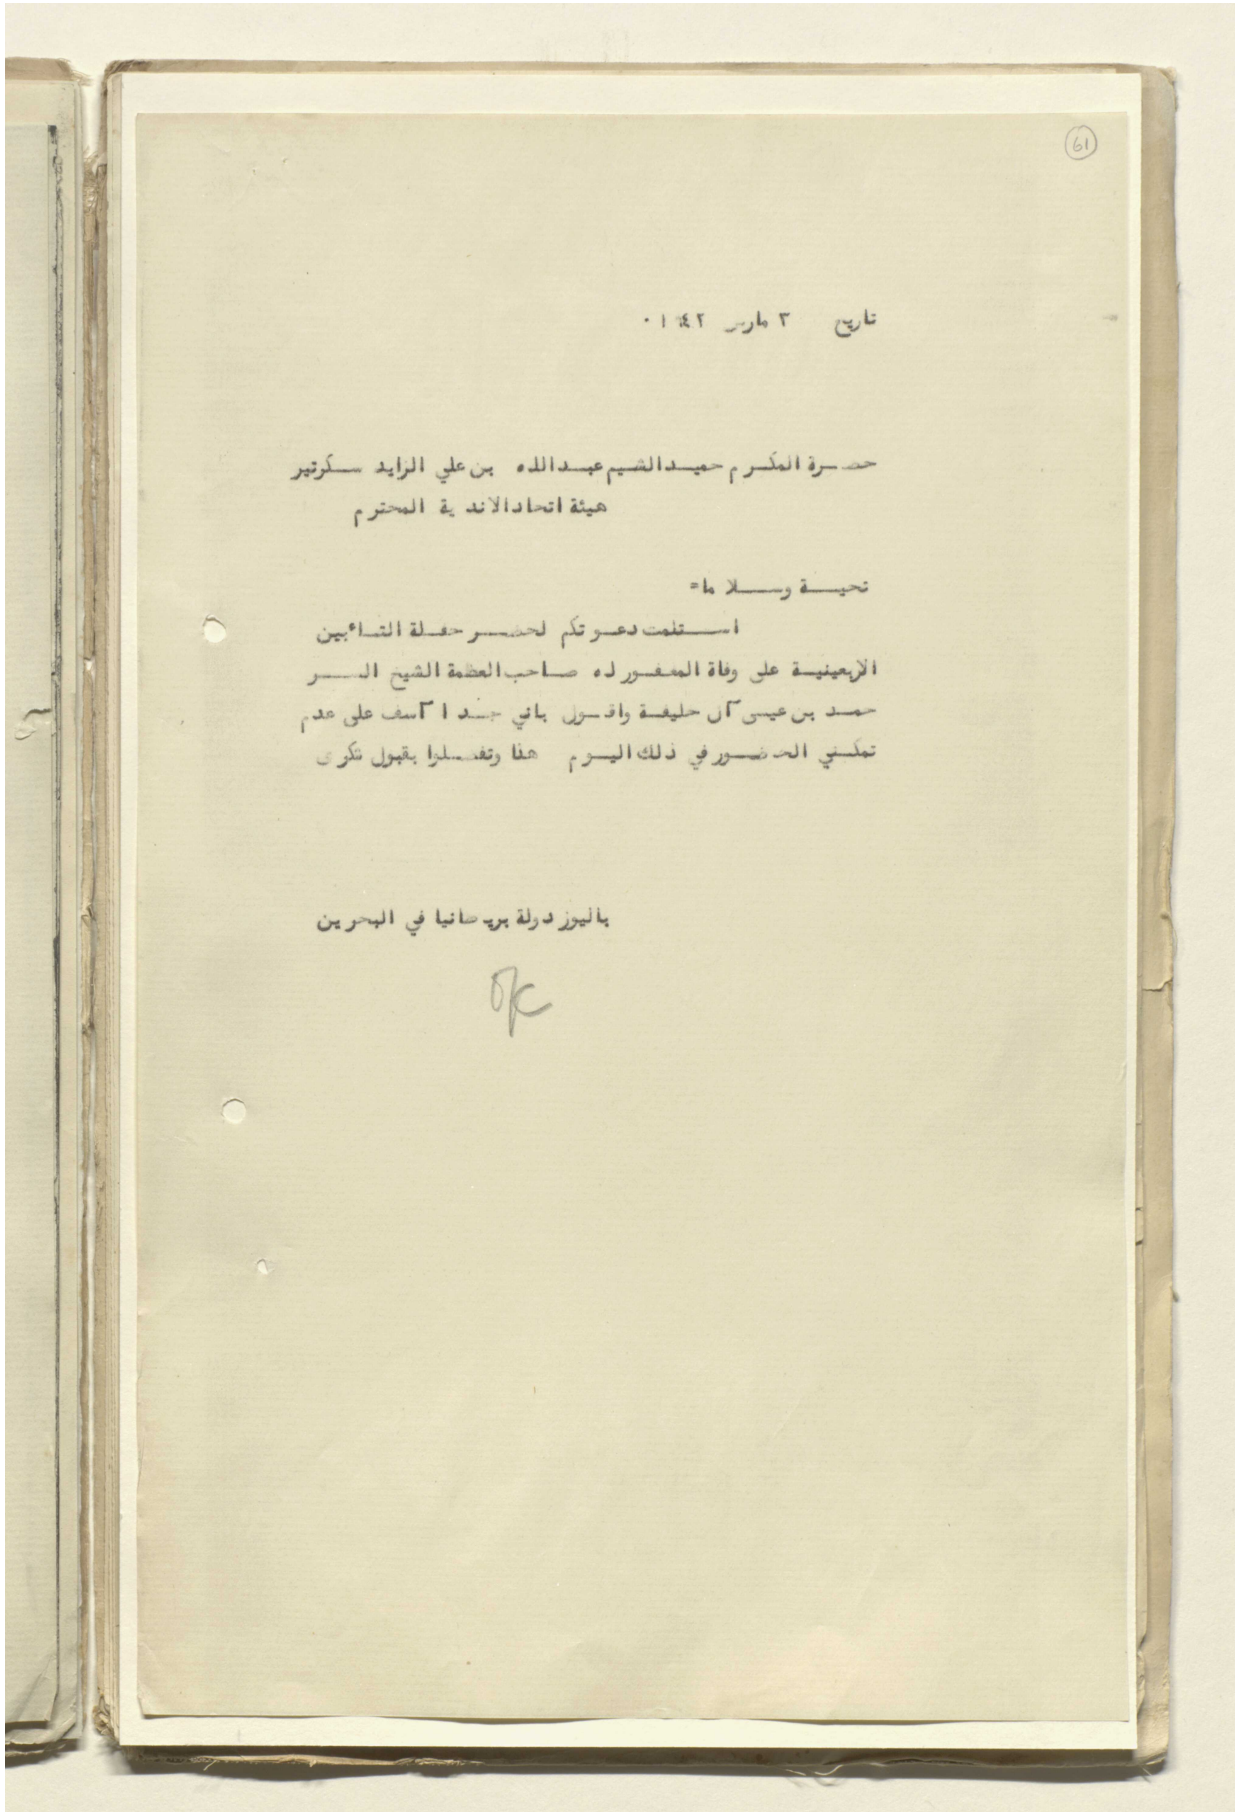 61
تاريخ ٣ مارس ١٩٤٢٠
حضرة المكرم حميد الشيم عبدالله بن علي الزايد سكرتير
هيئة اتحاد الاندية المحترم
تحية وسلاما=
استلمت دعوتكم لحضر حفلة التاءبين
الاربعينية على وفاة المغفور له صاحب العظمة الشيخ السر
حمد بن عيسى آل خليفة واقول باني جدا آسف على عدم
تمكني الحضور في ذلك اليوم هذا وتفضلوا بقبول شكرى
باليوز دولة بريطانيا في البحرين